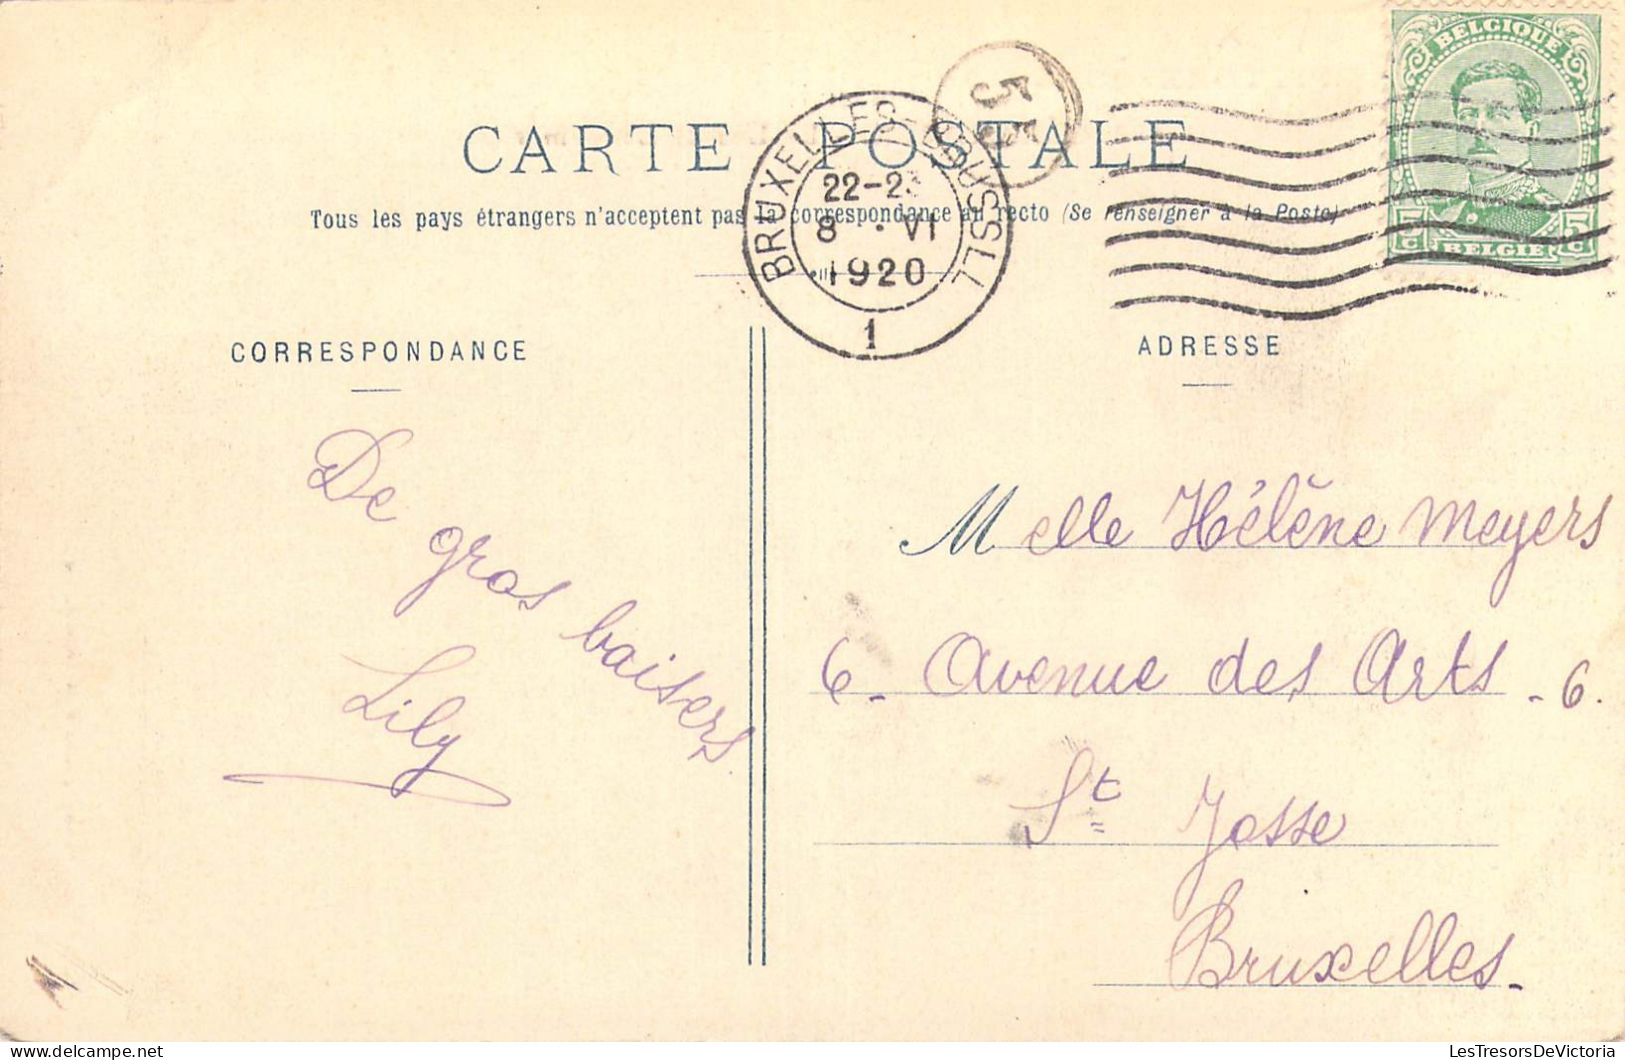 BELGIQUE
5c 5c
BELGIE
35
CARTE POSTALE
BRUXELLES-BRUSSEL
22-2
8 · VI
1920
1
Tous les pays étrangers n'acceptent pas la correspondance au recto (Se renseigner à la Poste)
CORRESPONDANCE
De gros baisers.
Lily
ADRESSE
Melle Hélène Meyers
6- Avenue des Arts - 6.
St Josse
Bruxelles.
LesTresorsDeVictoria